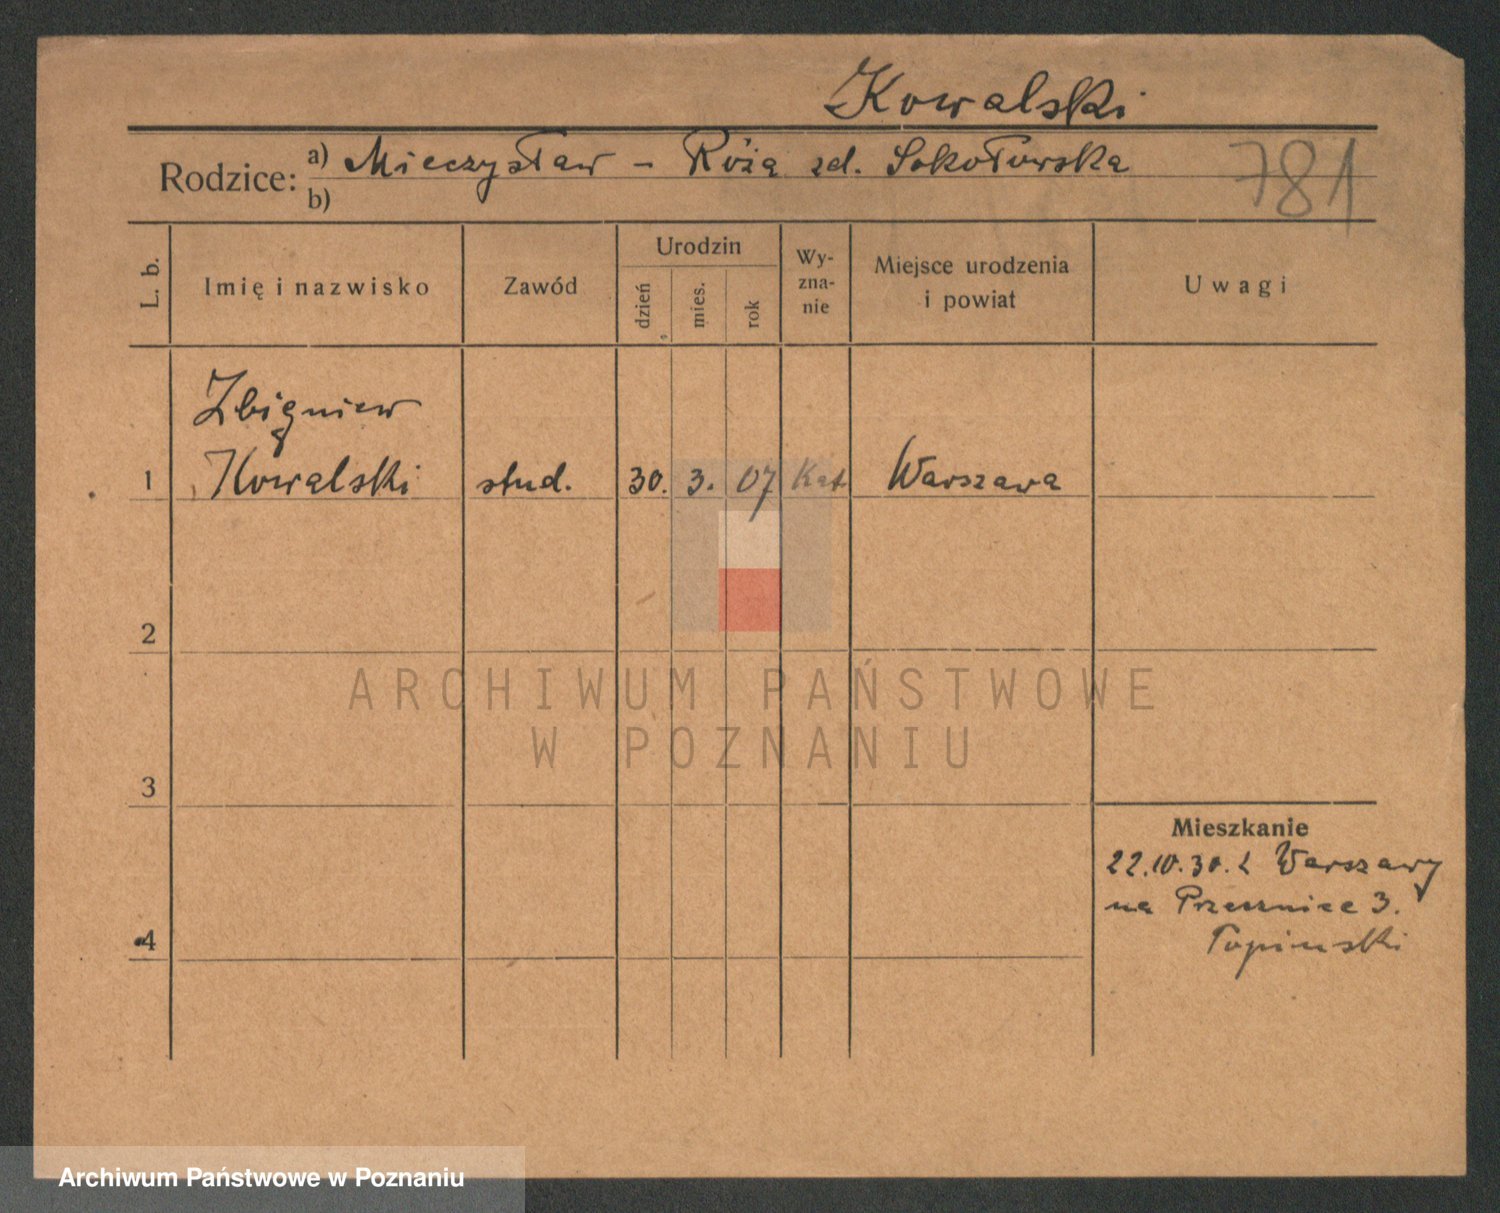 Kowalski
Rodzice: a) Mieczysław – Róża zd. Sokołowska
b)
781
L. b. Imię i nazwisko Zawód Urodzin dzień mies. rok Wy-zna-nie Miejsce urodzenia i powiat Uwagi
Zbigniew
1 Kowalski stud. 30. 3. 07 Kat Warszawa
2
ARCHIWUM PAŃSTWOWE
W POZNANIU
3
Mieszkanie
22.10.30. z Warszawy
na Przecznice 3.
4
Archiwum Państwowe w Poznaniu